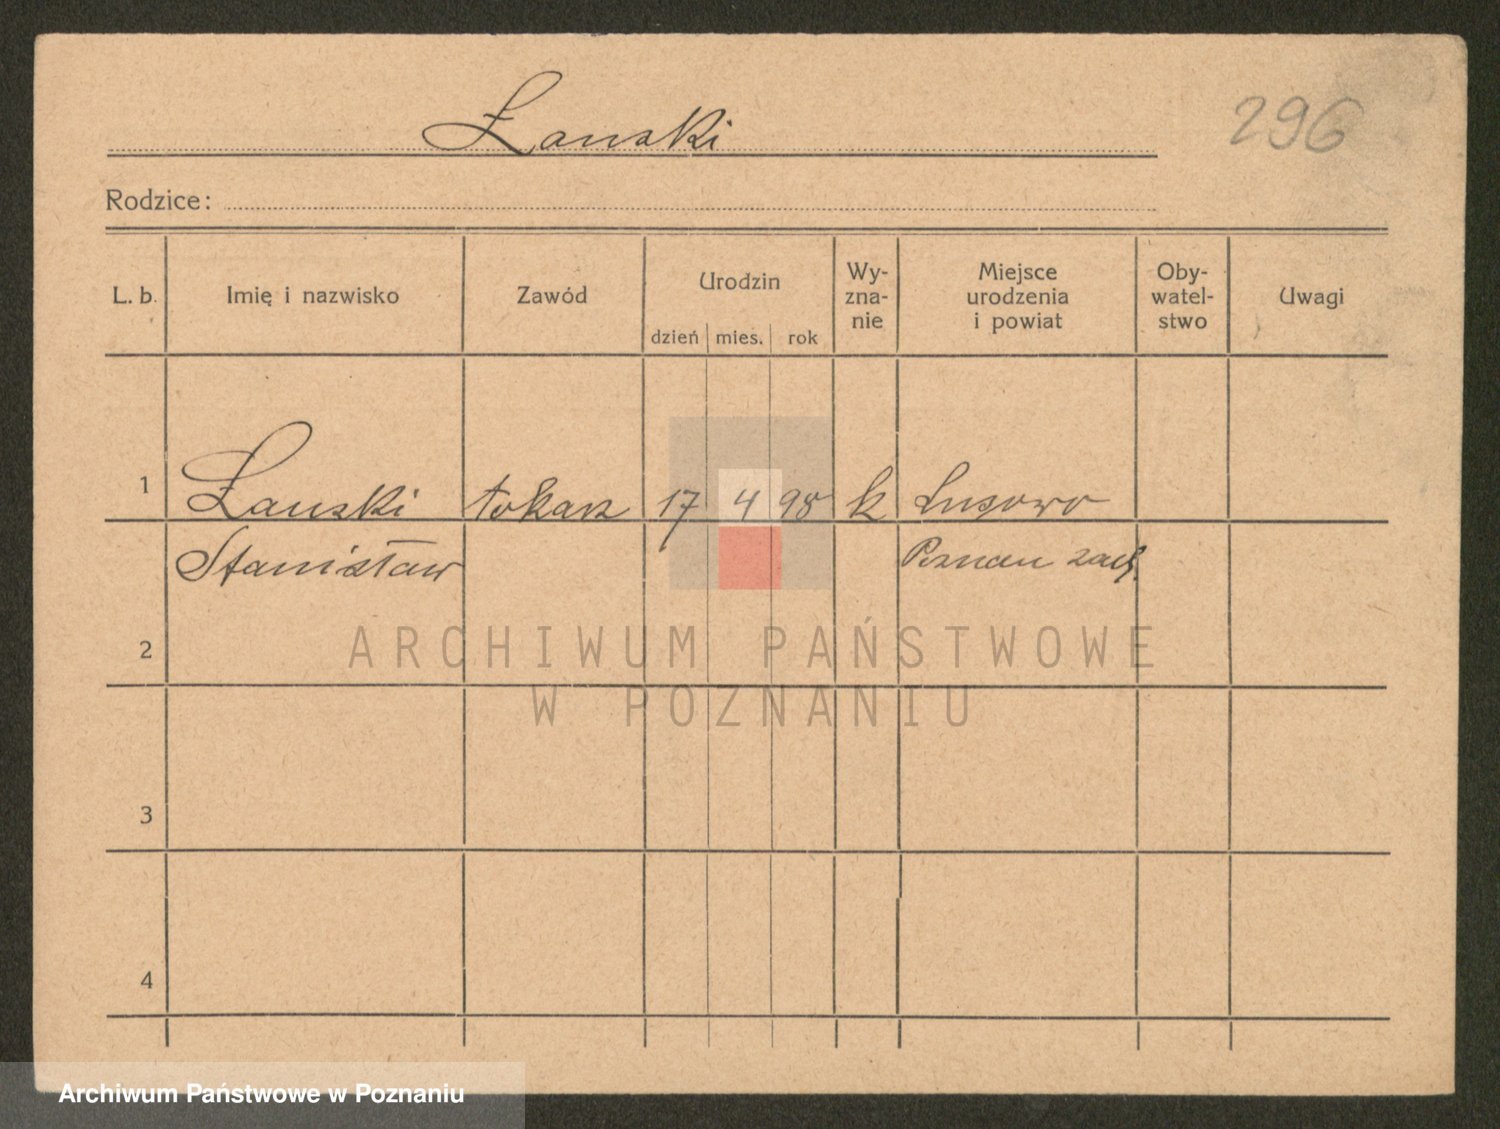 Łanski
296
Rodzice:
L. b. Imię i nazwisko Zawód Urodzin dzień mies. rok Wy-
zna-
nie Miejsce
urodzenia
i powiat Oby-
watel-
stwo Uwagi
1 Łanski tokarz 17 4 98 k Lusowo
Stanisław Poznan zach.
2
3
4
ARCHIWUM PAŃSTWOWE
W POZNANIU
Archiwum Państwowe w Poznaniu